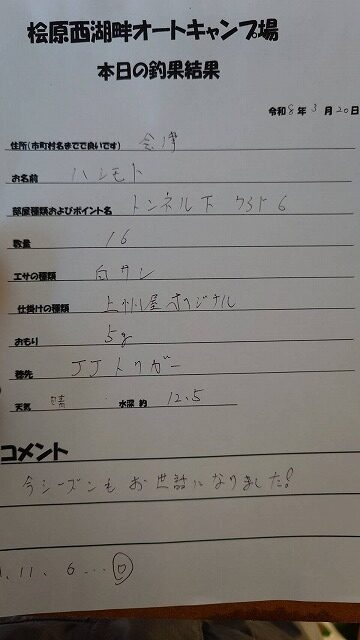 桧原西湖畔オートキャンプ場
本日の釣果結果
令和 8 年 3 月 20 日
住所(市町村名までで良いです) 会津
お名前 ハシモト
部屋種類およびポイント名 トンネル下 ワカド6
数量 16
エサの種類 白サシ
仕掛けの種類 上州屋オリジナル
おもり 5g
穂先 JJトリガー
天気 晴 水深 約 12.5
コメント
今シーズンも お世話になりました!
.11. 6...回